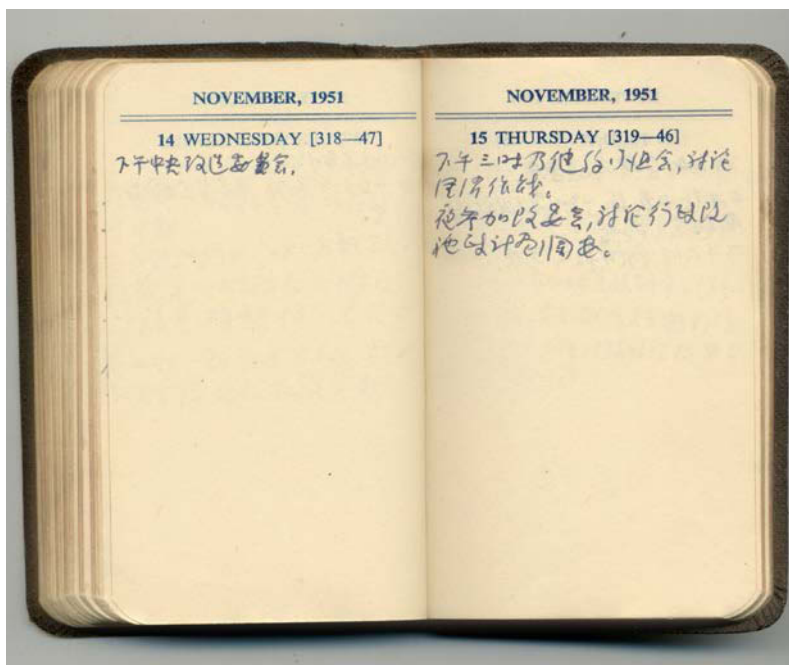 NOVEMBER, 1951
14 WEDNESDAY [318—47]
下午中央改造委員会.
NOVEMBER, 1951
15 THURSDAY [319—46]
下午三时乃健约小组会,讨论
夜参加改委会,讨论行政改